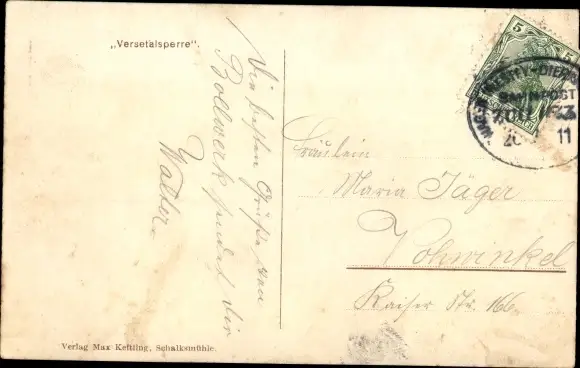 „Versetalsperre“.
Die besten Grüße von
Bollwerk sendet dir
Walter.
5 5
BAHNPOST
ZUG
11
Fräulein
Maria Jäger
Vohwinkel
Kaiser Str. 166.
Verlag Max Keftling, Schalksmühle.